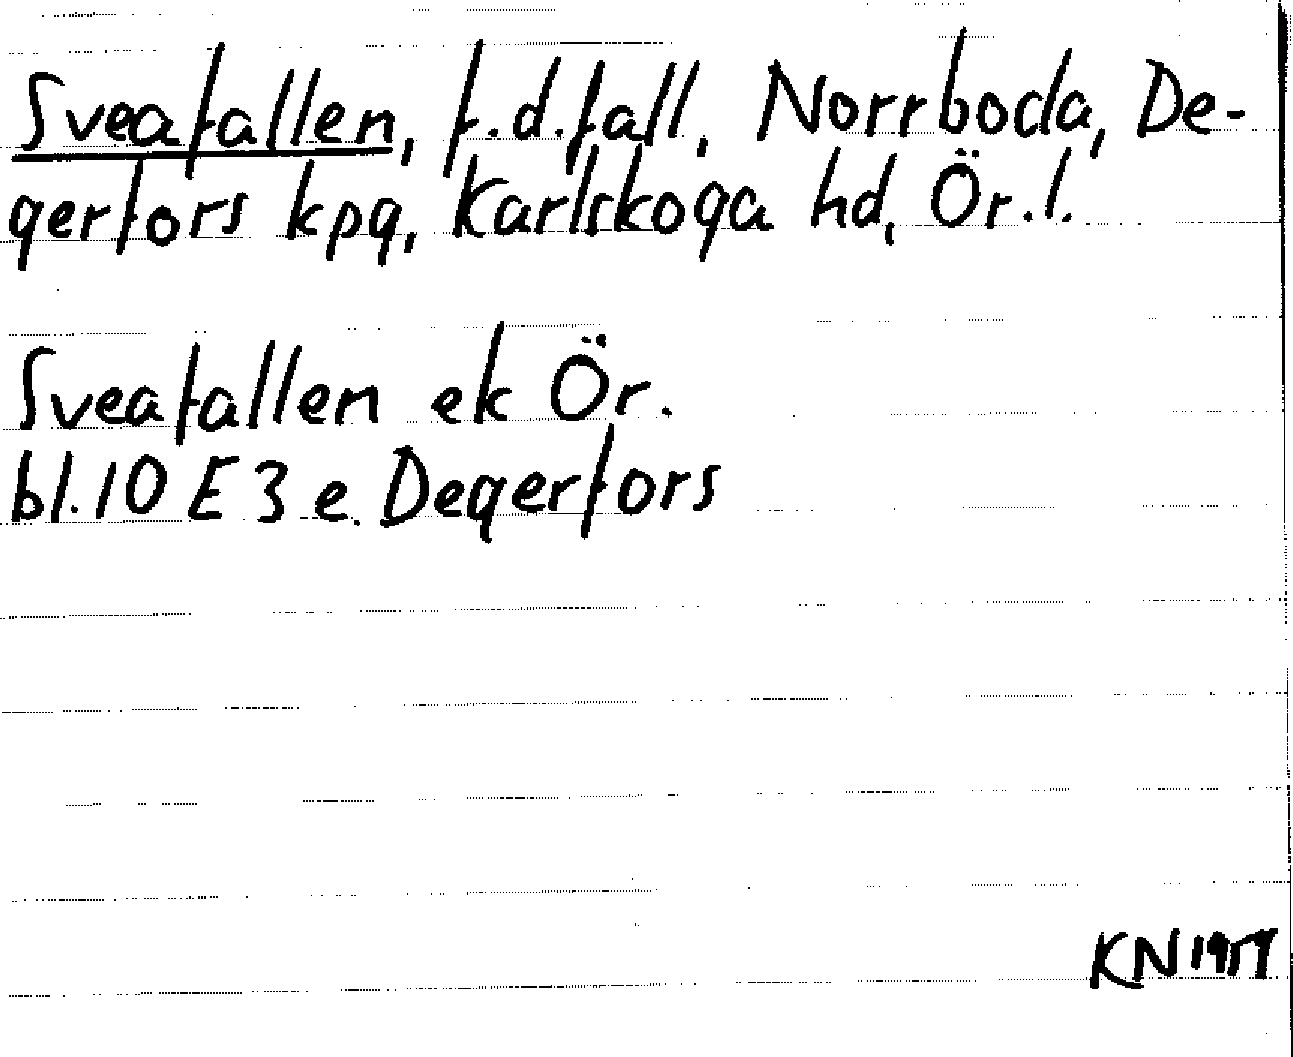 Sveafallen, f.d. fall, Norrboda, De-
gerfors kpg, Karlskoga hd, Ör.l.
Sveafallen ek Ör.
bl. 10 E 3 e Degerfors
KN